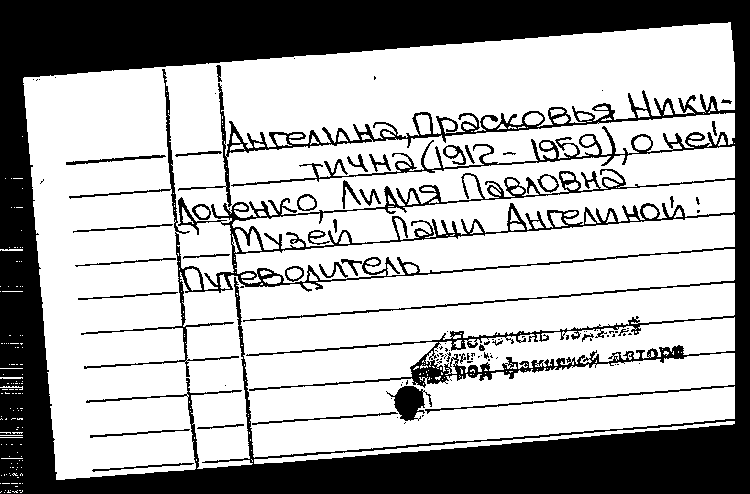 Ангелина, Прасковья Ники-
тична (1912 - 1959), о ней.
Доценко, Лидия Павловна.
Музей Паши Ангелиной:
Путеводитель.
Перечень изданий
под фамилией автора